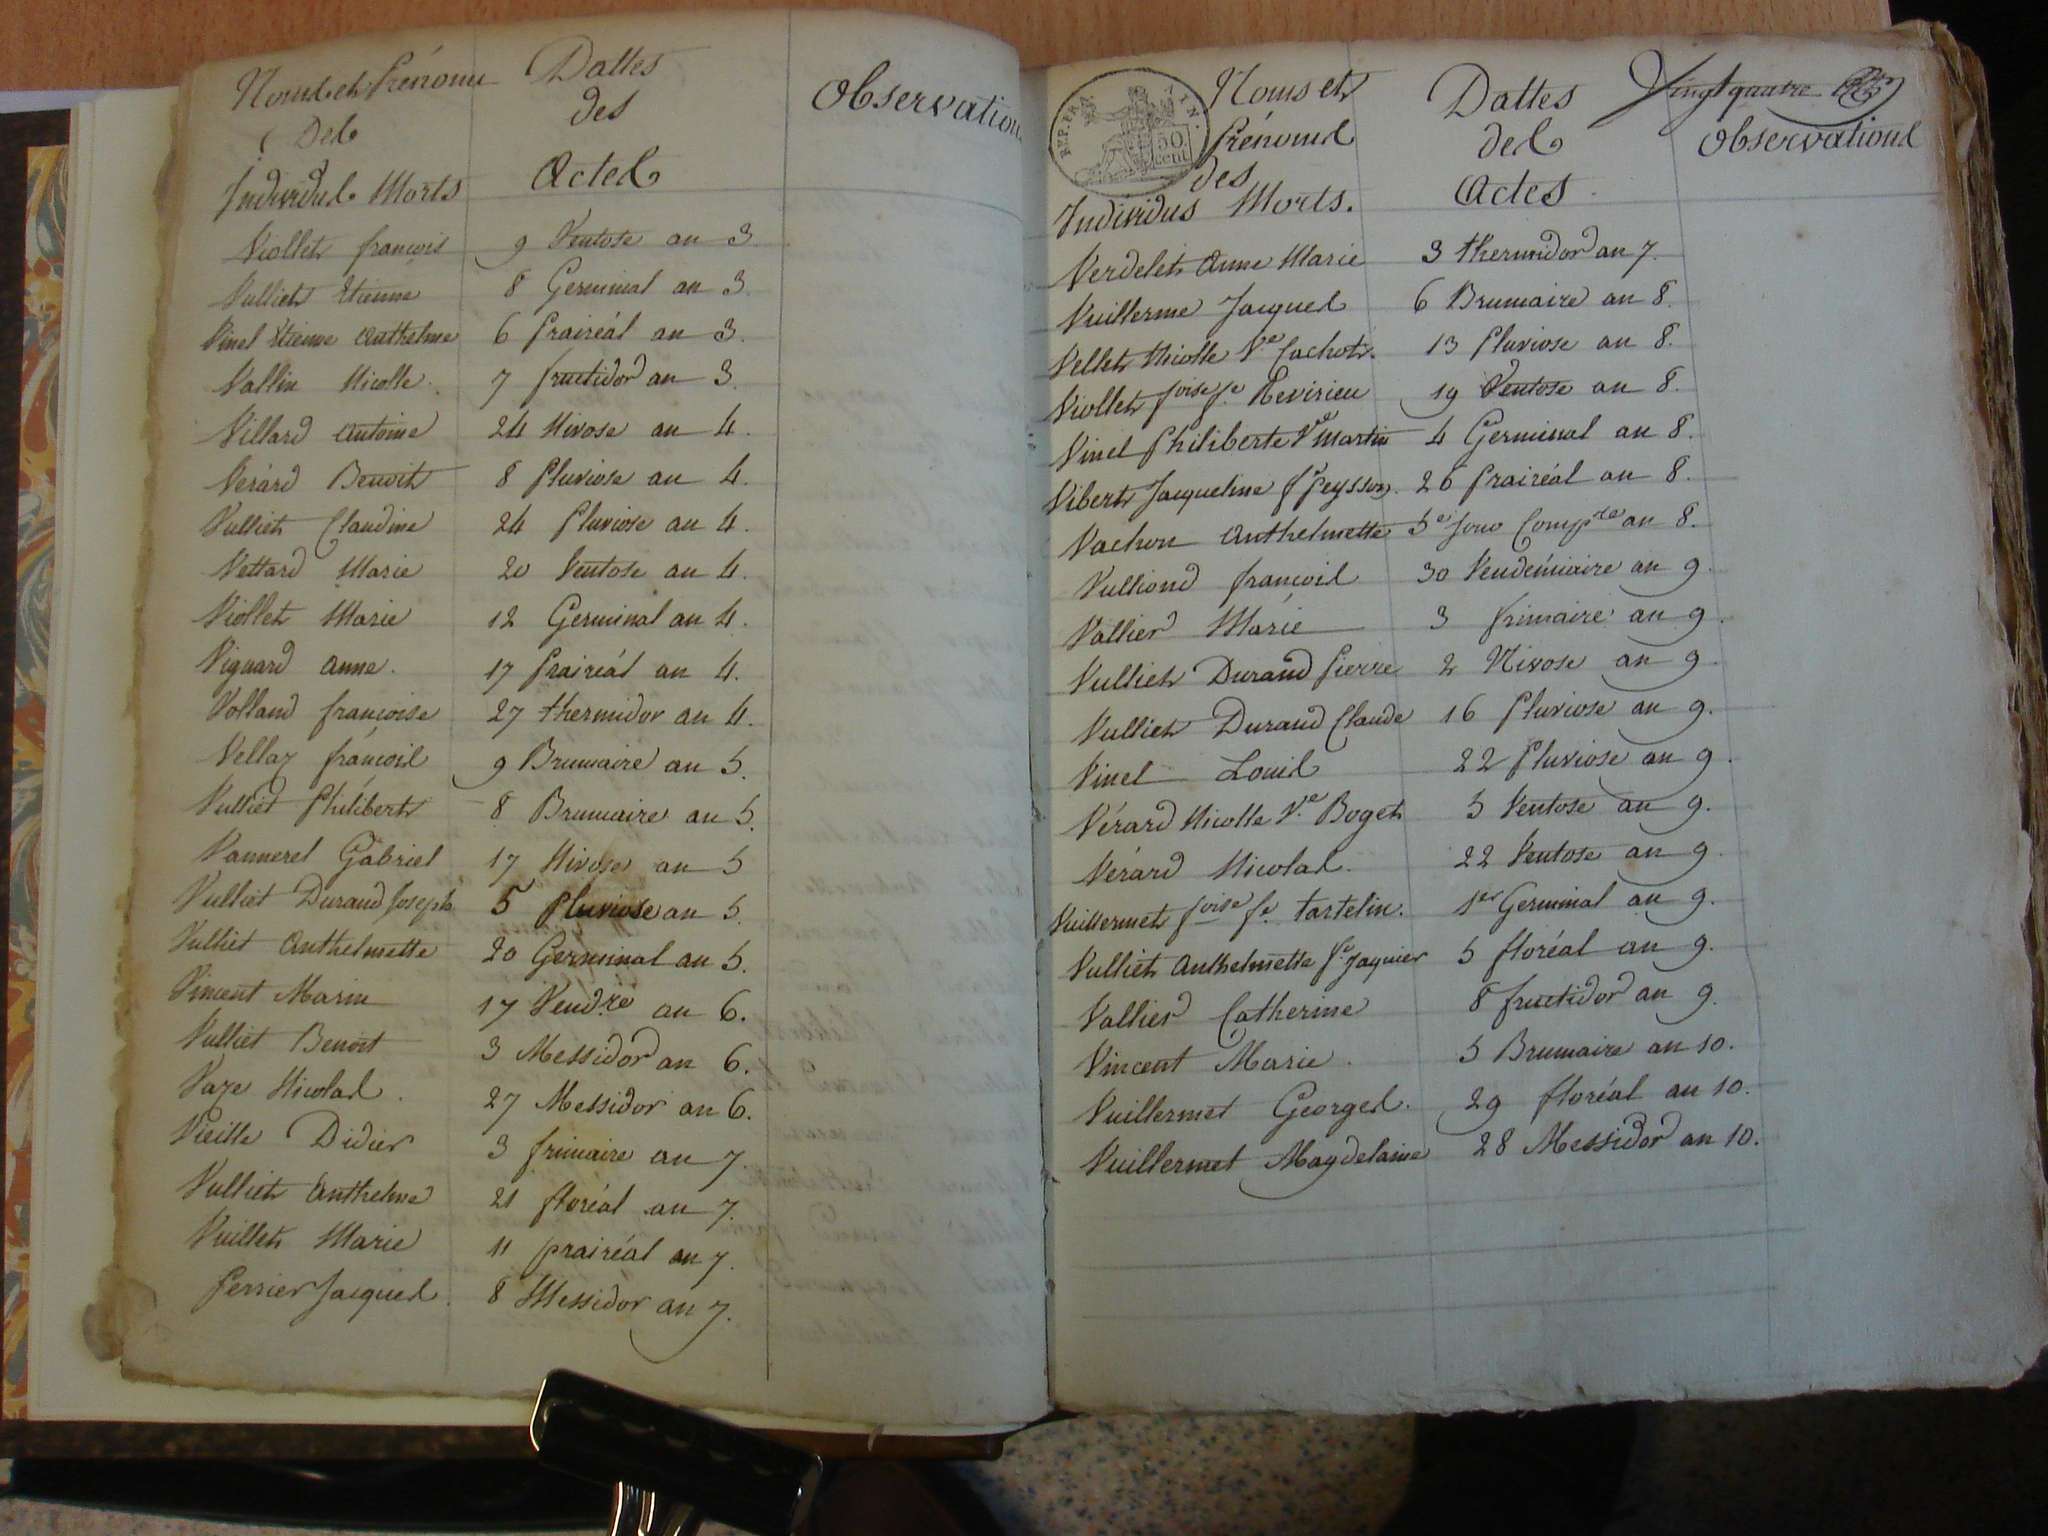 Noms et Prénoms
Des
Individus Morts
Dattes
des
Actes
Observations
Viollet françois 9 Ventose an 3
Vulliet Etienne 8 Germinal an 3
Vinel Etienne Anthelme 6 Prairéal an 3.
Vallin Nicolle 7 fructidor an 3.
Villard Antoine 24 Nivose an 4.
Vérard Benoit 8 Pluviose an 4.
Vulliet Claudine 24 Pluviose an 4.
Vettard Marie 20 Ventose an 4.
Viollet Marie 12 Germinal an 4.
Viguard Anne. 17 Prairéal an 4.
Volland françoise 27 thermidor an 4.
Vellay françois 9 Brumaire an 5.
Vulliet Philibert 8 Brumaire an 5.
Vannerel Gabriel 17 Nivose an 5
Vulliet Durand Joseph 5 Pluviose an 5.
Vulliet Anthelmette 20 Germinal an 5.
Vincent Marin 17 Vend.re an 6.
Vulliet Benoit 3 Messidor an 6.
Vaze Nicolas. 27 Messidor an 6.
Vieille Didier 3 frimaire an 7.
Vulliet Anthelme 21 floréal an 7.
Vuillet Marie 11 prairéal an 7.
Perrier Jacques. 8 Messidor an 7.
REP. FRA. TIN.
50
cent
Noms et
Prénoms
des
Individus Morts.
Dattes
des
Actes
Vingt quatre
Observations
Verdelet Anne Marie 3 thermidor an 7.
Vuillerme Jacques 6 Brumaire an 8.
Vellet Nicolle Ve Cachot. 13 Pluviose an 8.
Viollet foise fe Revirieu 19 Ventose an 8.
Vinel Philiberte Ve Martin 4 Germinal an 8.
Vibert Jacqueline fe Peysson. 26 Prairéal an 8.
Vachon Anthelmette 5e Jour Compre an 8.
Vulliond françois 30 Vendémiaire an 9.
Vallier Marie 3 frimaire an 9.
Vulliet Durand Pierre 2 Nivose an 9.
Vulliet Durand Claude 16 Pluviose an 9.
Vinel Louis 22 Pluviose an 9.
Vérard Nicolle Ve Boget 5 Ventose an 9.
Vérard Nicolas. 22 Ventose an 9.
Vuillermet foise fe tartelin. 1er Germinal an 9.
Vulliet Anthelmette fe Jaquier 5 floréal an 9.
Vallier Catherine 8 fructidor an 9.
Vincent Marie. 5 Brumaire an 10.
Vuillermet Georges. 29 floréal an 10.
Vuillermet Magdelaine 28 Messidor an 10.